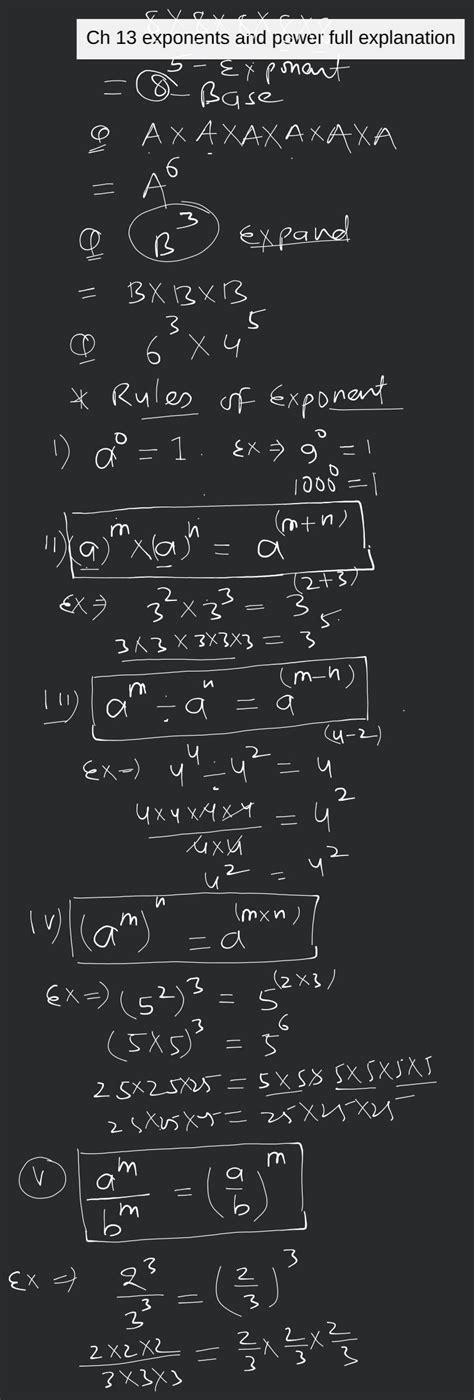 8 × 8 × 8 × 8 × 8
Ch 13 exponents and power full explanation
= 8^5 - Exponent
- Base
Q A × A × A × A × A × A
= A^6
Q B^3 Expand
= B × B × B
Q 6^3 × 4^5
* Rules of Exponent
I) a^0 = 1. Ex ⇒ 9^0 = 1
1000^0 = 1
II) (a)^m × (a)^n = a^(m+n)
Ex ⇒ 3^2 × 3^3 = 3^(2+3)
3 × 3 × 3 × 3 × 3 = 3^5
III) a^m ÷ a^n = a^(m-n)
Ex ⇒ 4^4 ÷ 4^2 = 4^(4-2)
4 × 4 × 4 × 4 / 4 × 4 = 4^2
4^2 = 4^2
IV) (a^m)^n = a^(m×n)
Ex ⇒ (5^2)^3 = 5^(2×3)
(5 × 5)^3 = 5^6
25 × 25 × 25 = 5 × 5 × 5 × 5 × 5 × 5
25 × 25 × 25 = 25 × 25 × 25
V a^m / b^m = (a/b)^m
Ex ⇒ 2^3 / 3^3 = (2/3)^3
2 × 2 × 2 / 3 × 3 × 3 = 2/3 × 2/3 × 2/3